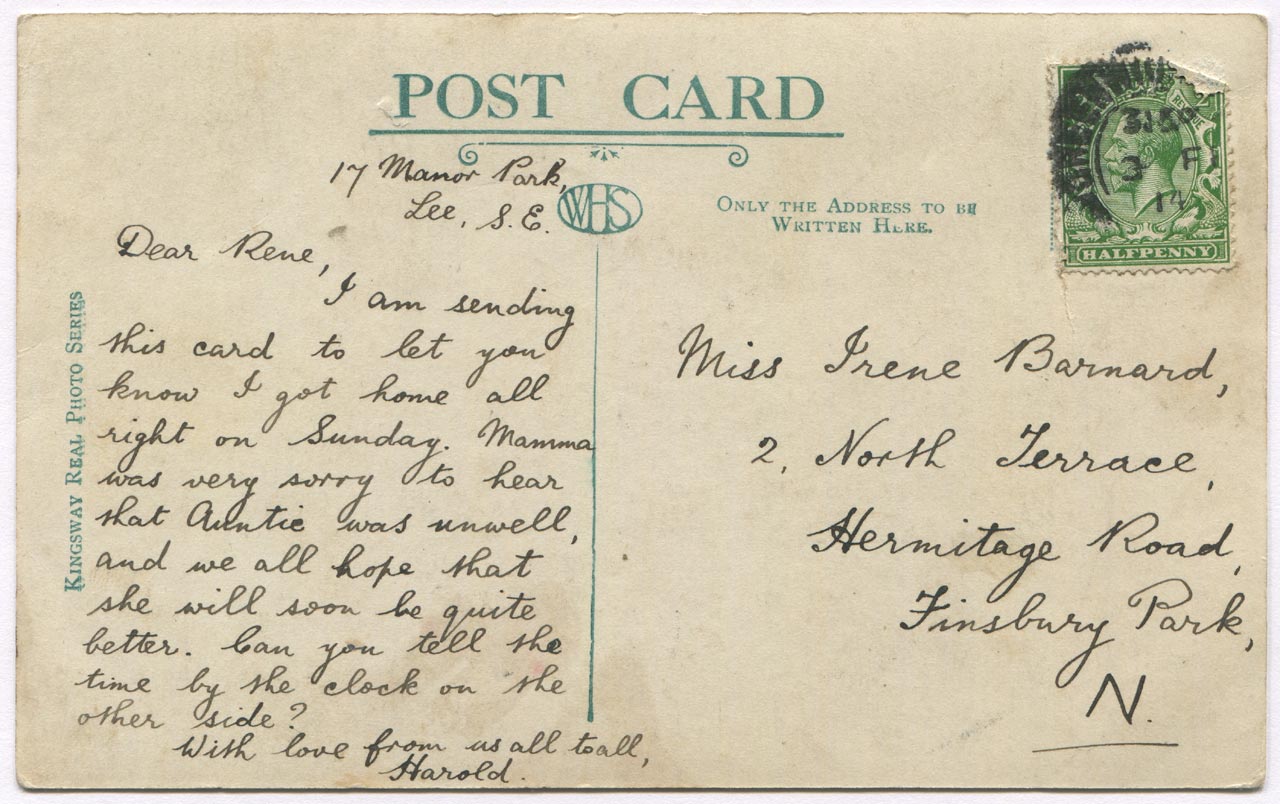 POST CARD
17 Manor Park,
Lee, S.E.
WHS
ONLY THE ADDRESS TO BE
WRITTEN HERE.
3 15 P
3 F
14
HALFPENNY
KINGSWAY REAL PHOTO SERIES
Dear Rene,
I am sending
this card to let you
know I got home all
right on Sunday. Mamma
was very sorry to hear
that Auntie was unwell,
and we all hope that
she will soon be quite
better. Can you tell the
time by the clock on the
other side?
With love from us all to all,
Harold.
Miss Irene Barnard,
2, North Terrace,
Hermitage Road,
Finsbury Park,
N.